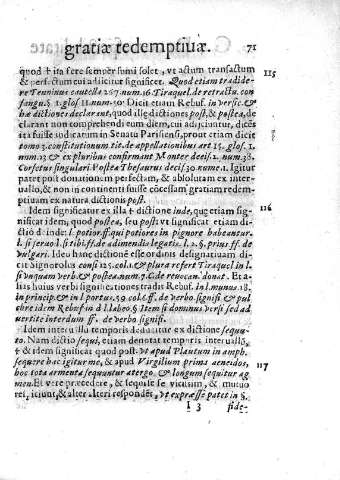 gratiæ redemptiuæ. 71
quod † ita fere semper sumi solet, vt actum transactum 115
& perfectum cui adiicitur significet. Quod etiam tradide-
re Tenninus cautella 267. num. 16. Tiraquel. de retractu. con
sangu. §. 1. glos 11. num. 50. Dicit etiam Rebuf. in versic. & v
hæ dictiones declarant, quod illę dictiones post, & postea, de
clarant non comprehendi eum diem, cui adijciuntur, dicēs
ita fuisse iudicatum in Senatu Parisiensi, prout etiam dicit
tomo 3. constitutionum tit. de appellationibus art 15. glos. 1.
num. 13 & ex pluribus confirmant Monter decis. 2. num. 38.
Corsetus singulari Postea Thesaurus decis 30. nume 1. Igitur
patet post donationem perfectam, & absolutam ex inter-
uallo, & non in continenti fuisse cōcessam gratiam redem-
ptiuam ex natura dictionis post.
Idem significatur ex illa † dictione inde, que etiam sig- 116
nificat idem, quod postea, vel post. significat etiam di-
ctio deinde: l. potior. ff. qui potiores in pignore habeantur.
l. si seruo l. si tibi. ff. de adimendis legatis. l. 2. §. prius ff. de
vulgari. Ideo hanc dictionem esse ordinis designatiuam di-
cit Signorolus consi 125. col. 1. & plura refert Tiraquel in l.
si vnquam verb. & postea. num. 7. C. de reuocan. donat. Et a-
lias huius verbi significationes tradit Rebuf. in l. munus. 18.
in princip. & in l portus. 59 col. 1. ff. de verbo signifi & pul
chre idem Rebuf in d l. labeo §. Item si dominus versi sed ad
uertite interdum ff. de verbo signifi.
Idem interuallum temporis deducitur ex dictione sequu-
to. Nam dictio sequi, etiam denotat temporis interuallū,
† & idem significat quod post: vt apud Plautum in amph.
sequere hac igitur me, & apud Virgilium primo aeneidos, 117
hos tota armenta sequuntur a tergo. & longum sequitur ag
men. Et vere præcedere, & sequi se vicissim, & mutuo
respiciunt, & alter alteri respondet, vt expræsse patet in §.
l 3 fide-